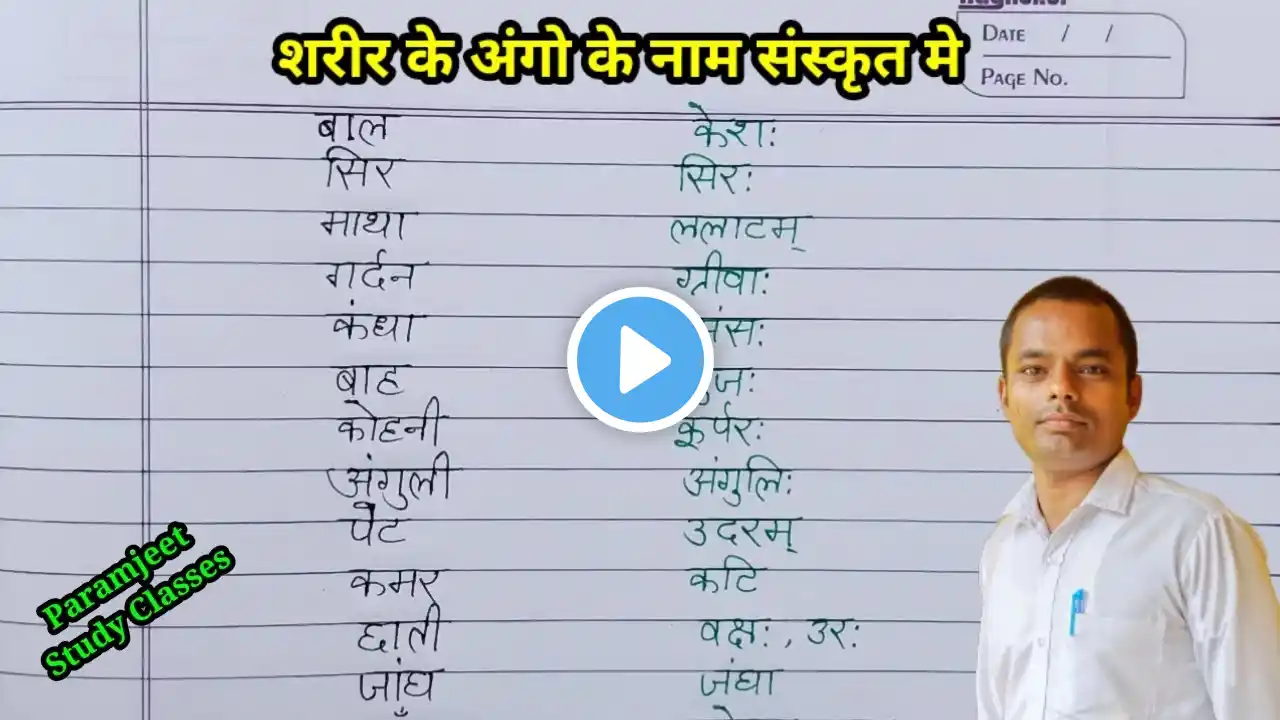 शरीर के अंगो के नाम संस्कृत मे
DATE / /
PAGE No.
बाल केशः
सिर सिरः
माथा ललाटम्
गर्दन ग्रीवाः
कंधा ंसः
बाह जः
कोहनी कूर्परः
अंगुली अंगुलिः
पेट उदरम्
कमर कटि
छाती वक्षः , उरः
जांघ जंघा
Paramjeet
Study Classes